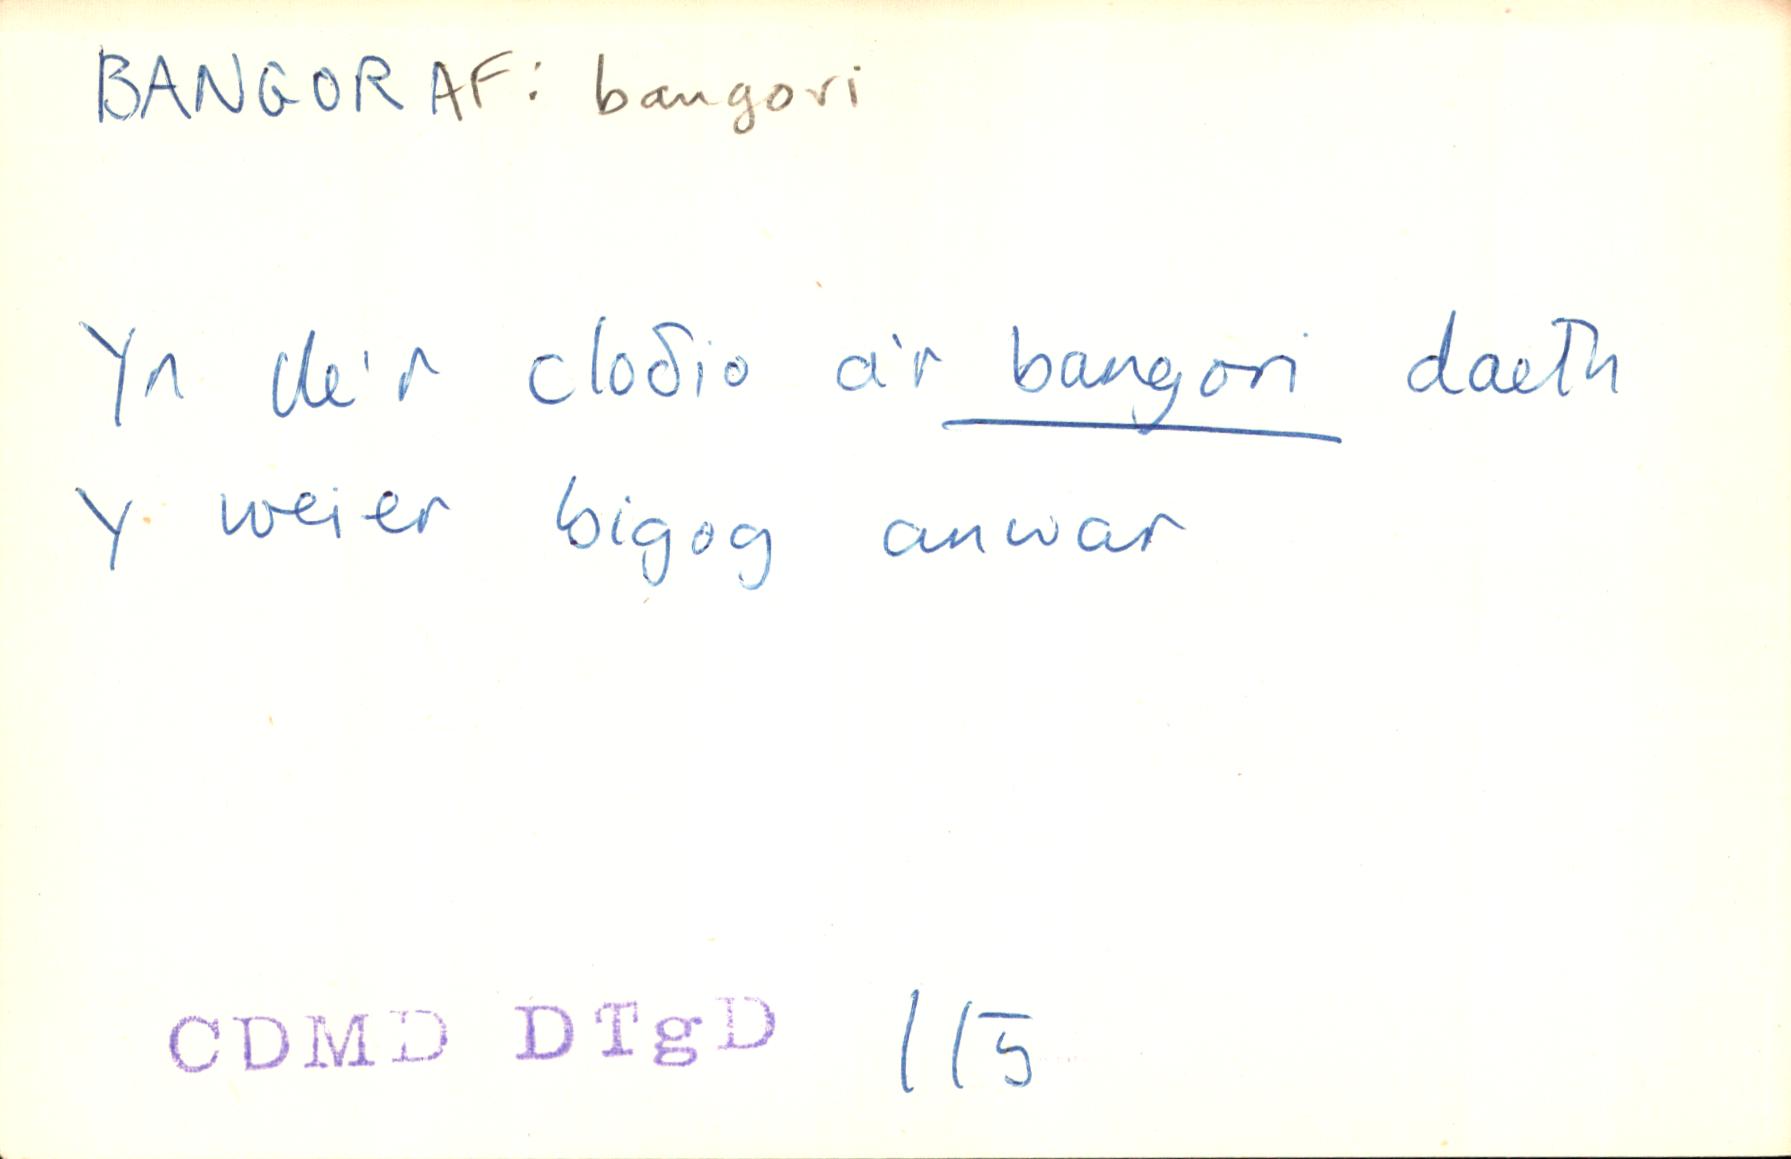 BANGORAF: bangori
Yn lle'r cloδio a'r bangori daeth
Y weier bigog anwar
CDMD DTgD 115